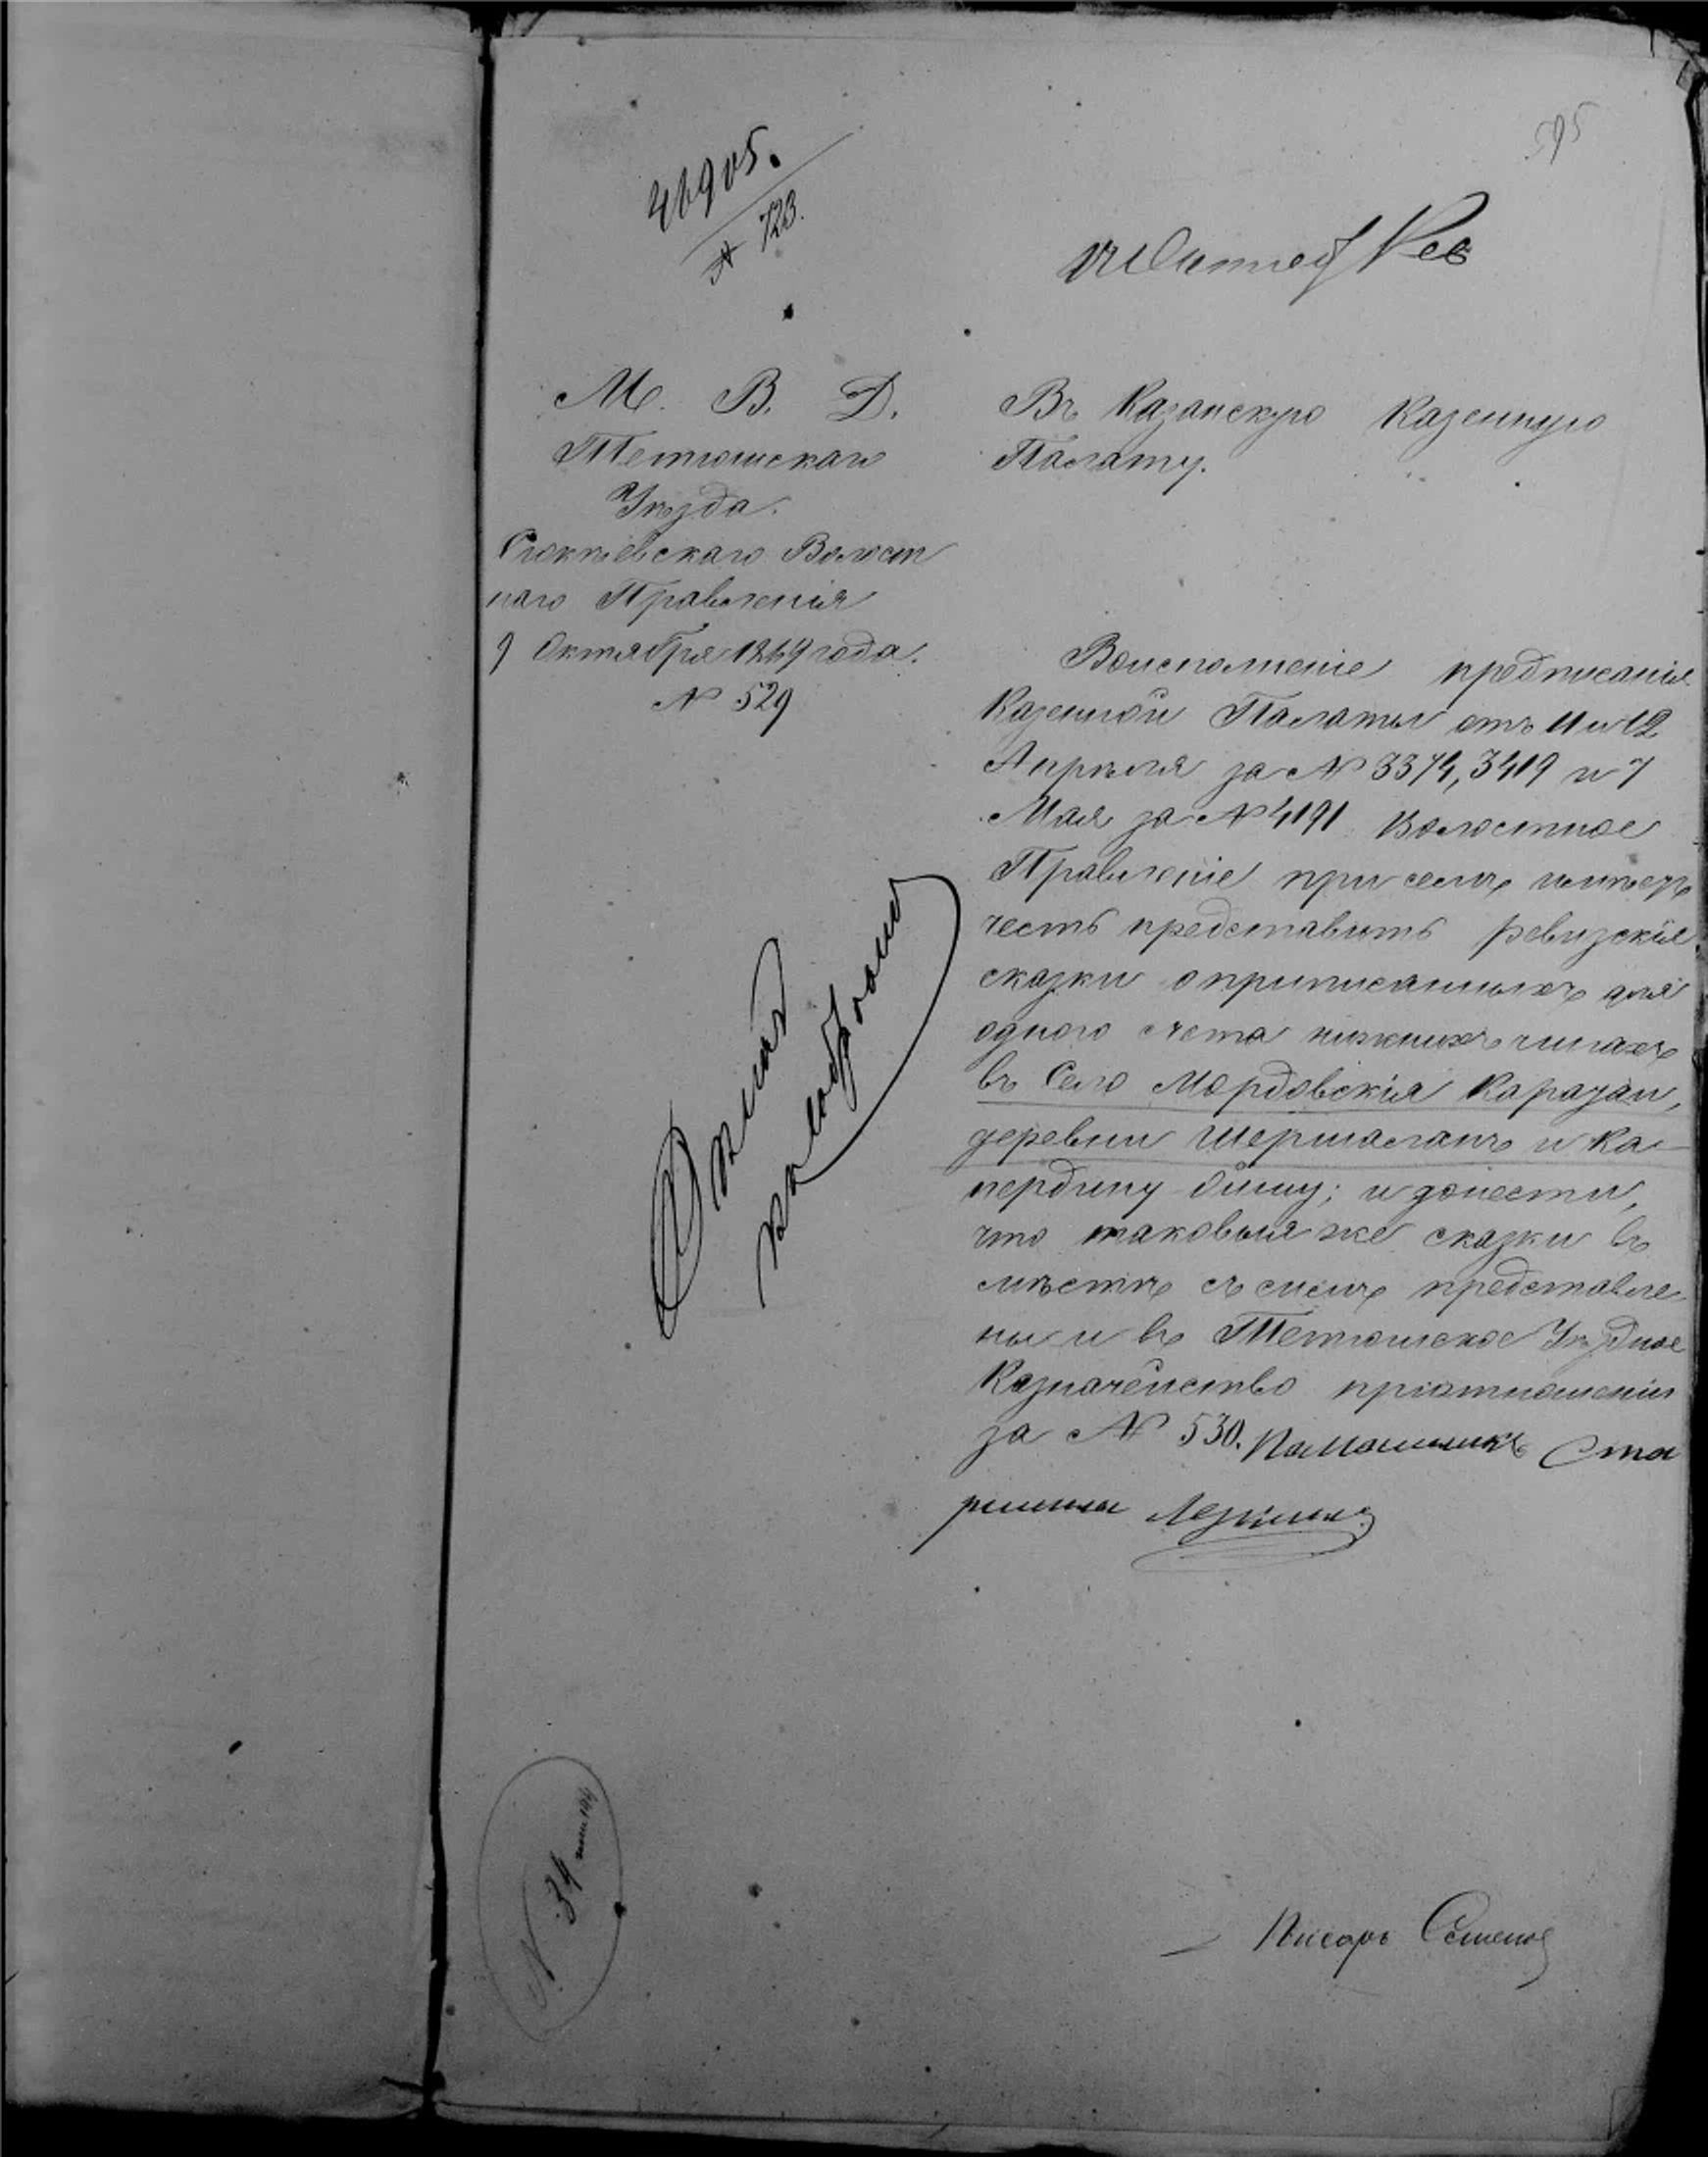 595
46905.
№ 723.
М. В. Д.
Тетюшскаго
Уѣзда.
Сюкѣевскаго Волост
наго Правленія
9 Октября 1869 года.
№ 529
Въ Казанскую Казенную
Палату.
Воисполненіе предписанія
Казенной Палаты отъ 11 и 12
Апрѣля за № 3374, 3419 и 7
Мая за № 4191 Волостное
Правленіе при семъ имѣетъ
честь представить ревизскія
сказки оприписанныхъ для
одного счета нижнихъ чинахъ
въ Село Мордовскія Каратаи,
деревни Шершаланъ и Ка-
пердину; и донести,
что таковыя же сказки въ
мѣстѣ съ симъ представле-
ны и въ Тетюшское Уѣздное
Казначейство приотношеніи
за № 530. Помощникъ Ста
ршины
Писарь Семенов
№ 34